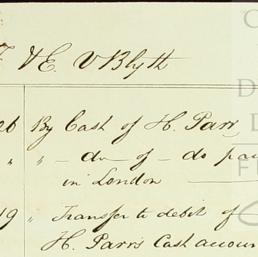 & E. V Blyth
26 By Cash of H. Parr
" " - do - of - do pai
in London
19 " Transfer to debit of
H. Parr's Cash accoun